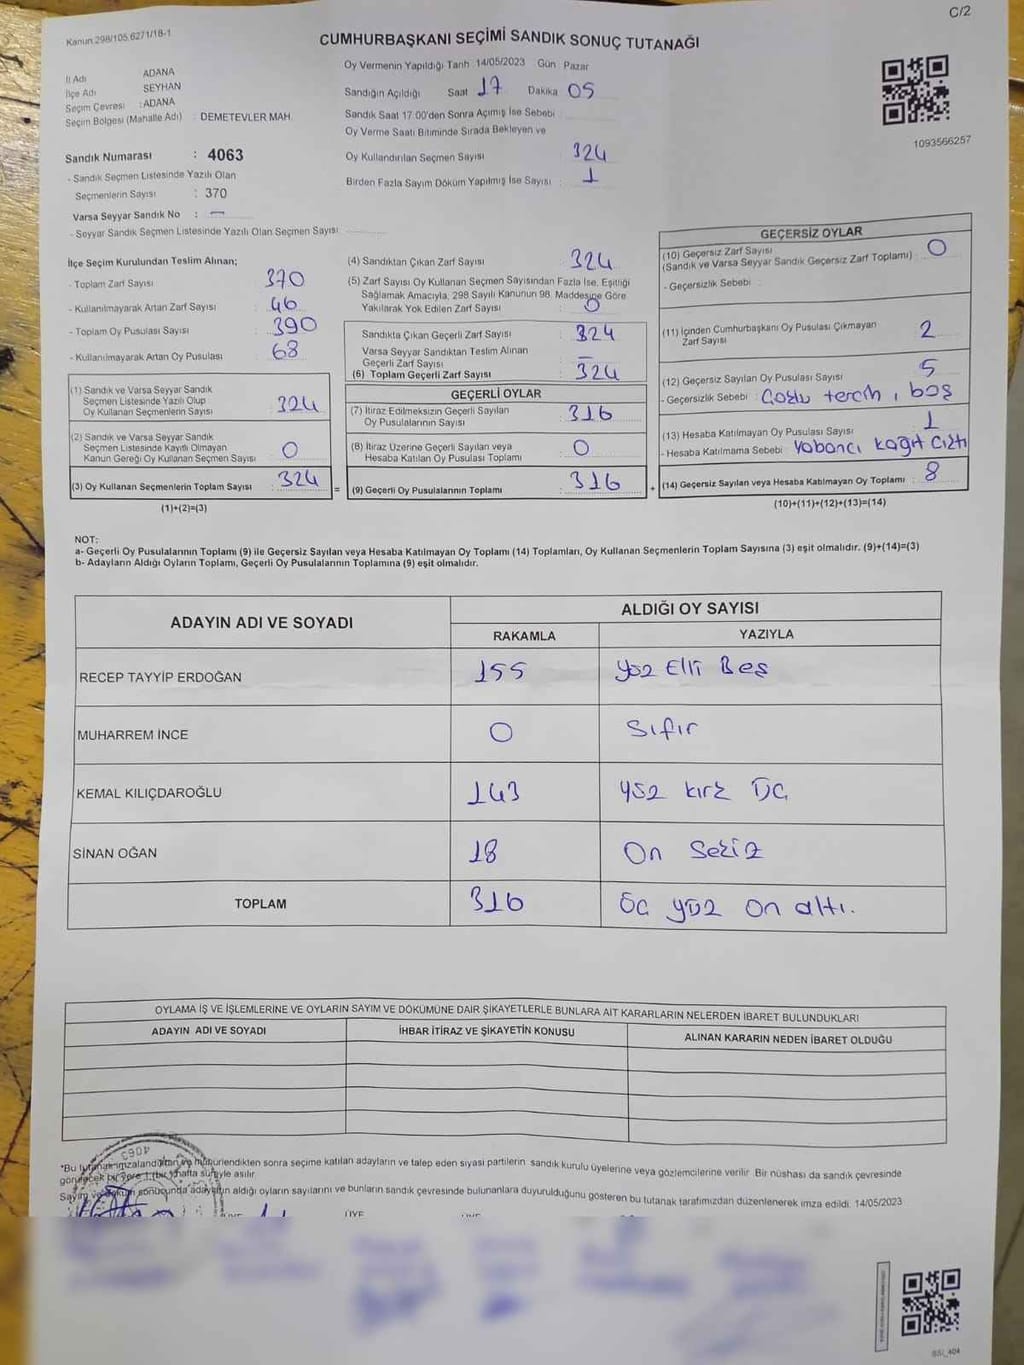 C/2
Kanun 298/105.6271/18-1
CUMHURBAŞKANI SEÇİMİ SANDIK SONUÇ TUTANAĞI
İl Adı ADANA
İlçe Adı SEYHAN
Seçim Çevresi : ADANA
Seçim Bölgesi (Mahalle Adı) DEMETEVLER MAH.
Oy Vermenin Yapıldığı Tarih 14/05/2023 Gün Pazar
Sandığın Açıldığı Saat 17 Dakika 05
Sandık Saat 17.00'den Sonra Açımış İse Sebebi
Oy Verme Saati Bitiminde Sırada Bekleyen ve
Oy Kullandırılan Seçmen Sayısı 324
Birden Fazla Sayım Döküm Yapılmış İse Sayısı : 1
1093566257
Sandık Numarası : 4063
- Sandık Seçmen Listesinde Yazılı Olan
Seçmenlerin Sayısı : 370
Varsa Seyyar Sandık No : -
- Seyyar Sandık Seçmen Listesinde Yazılı Olan Seçmen Sayısı
İlçe Seçim Kurulundan Teslim Alınan;
- Toplam Zarf Sayısı : 370
- Kullanılmayarak Artan Zarf Sayısı : 46
- Toplam Oy Pusulası Sayısı : 390
- Kullanılmayarak Artan Oy Pusulası : 68
(1) Sandık ve Varsa Seyyar Sandık
Seçmen Listesinde Yazılı Olup
Oy Kullanan Seçmenlerin Sayısı : 324
(2) Sandık ve Varsa Seyyar Sandık
Seçmen Listesinde Kayıtlı Olmayan
Kanun Gereği Oy Kullanan Seçmen Sayısı : 0
(3) Oy Kullanan Seçmenlerin Toplam Sayısı : 324 =
(1)+(2)=(3)
(4) Sandıktan Çıkan Zarf Sayısı : 324
(5) Zarf Sayısı Oy Kullanan Seçmen Sayısından Fazla İse, Eşitliği
Sağlamak Amacıyla, 298 Sayılı Kanunun 98. Maddesine Göre
Yakılarak Yok Edilen Zarf Sayısı : 0
Sandıkta Çıkan Geçerli Zarf Sayısı : 324
Varsa Seyyar Sandıktan Teslim Alınan
Geçerli Zarf Sayısı : -
(6) Toplam Geçerli Zarf Sayısı : 324
GEÇERLİ OYLAR
(7) İtiraz Edilmeksizin Geçerli Sayılan
Oy Pusulalarının Sayısı : 316
(8) İtiraz Üzerine Geçerli Sayılan veya
Hesaba Katılan Oy Pusulası Toplamı : 0
(9) Geçerli Oy Pusulalarının Toplamı : 316 +
GEÇERSİZ OYLAR
(10) Geçersiz Zarf Sayısı
(Sandık ve Varsa Seyyar Sandık Geçersiz Zarf Toplamı) : 0
- Geçersizlik Sebebi :
(11) İçinden Cumhurbaşkanı Oy Pusulası Çıkmayan
Zarf Sayısı : 2
(12) Geçersiz Sayılan Oy Pusulası Sayısı : 5
- Geçersizlik Sebebi : Çoklu tercih, boş
(13) Hesaba Katılmayan Oy Pusulası Sayısı : 1
- Hesaba Katılmama Sebebi : Yabancı kağıt Çıktı
(14) Geçersiz Sayılan veya Hesaba Katılmayan Oy Toplamı : 8
(10)+(11)+(12)+(13)=(14)
NOT:
a- Geçerli Oy Pusulalarının Toplamı (9) ile Geçersiz Sayılan veya Hesaba Katılmayan Oy Toplamı (14) Toplamları, Oy Kullanan Seçmenlerin Toplam Sayısına (3) eşit olmalıdır. (9)+(14)=(3)
b- Adayların Aldığı Oyların Toplamı, Geçerli Oy Pusulalarının Toplamına (9) eşit olmalıdır.
ADAYIN ADI VE SOYADI ALDIĞI OY SAYISI
RAKAMLA YAZIYLA
RECEP TAYYİP ERDOĞAN 155 Yüz Elli Beş
MUHARREM İNCE 0 Sıfır
KEMAL KILIÇDAROĞLU 143 yüz kırk Üç
SİNAN OĞAN 18 On Sekiz
TOPLAM 316 Üç yüz on altı.
OYLAMA İŞ VE İŞLEMLERİNE VE OYLARIN SAYIM VE DÖKÜMÜNE DAİR ŞİKAYETLERLE BUNLARA AİT KARARLARIN NELERDEN İBARET BULUNDUKLARI
ADAYIN ADI VE SOYADI İHBAR İTİRAZ VE ŞİKAYETİN KONUSU ALINAN KARARIN NEDEN İBARET OLDUĞU
4063
*Bu tutanak imzalandıktan ve mühürlendikten sonra seçime katılan adayların ve talep eden siyasi partilerin sandık kurulu üyelerine veya gözlemcilerine verilir. Bir nüshası da sandık çevresinde
görülecek bir yere 1 (bir) hafta süreyle asılır.
Sayım ve döküm sonucunda adayların aldığı oyların sayılarını ve bunların sandık çevresinde bulunanlara duyurulduğunu gösteren bu tutanak tarafımızdan düzenlenerek imza edildi. 14/05/2023
ÜYE